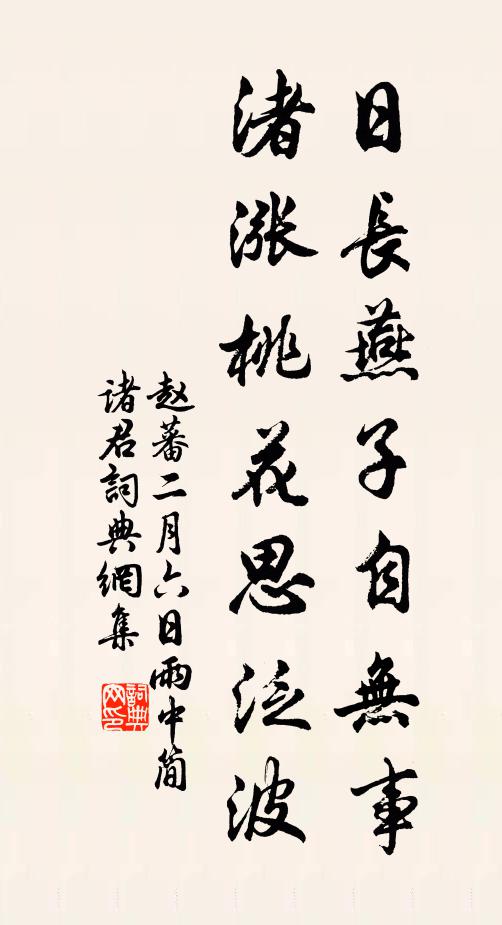 日長燕子自無事
渚漲桃花思泛波
赵蕃二月六日雨中简
諸君詞典網集
詞典
网印